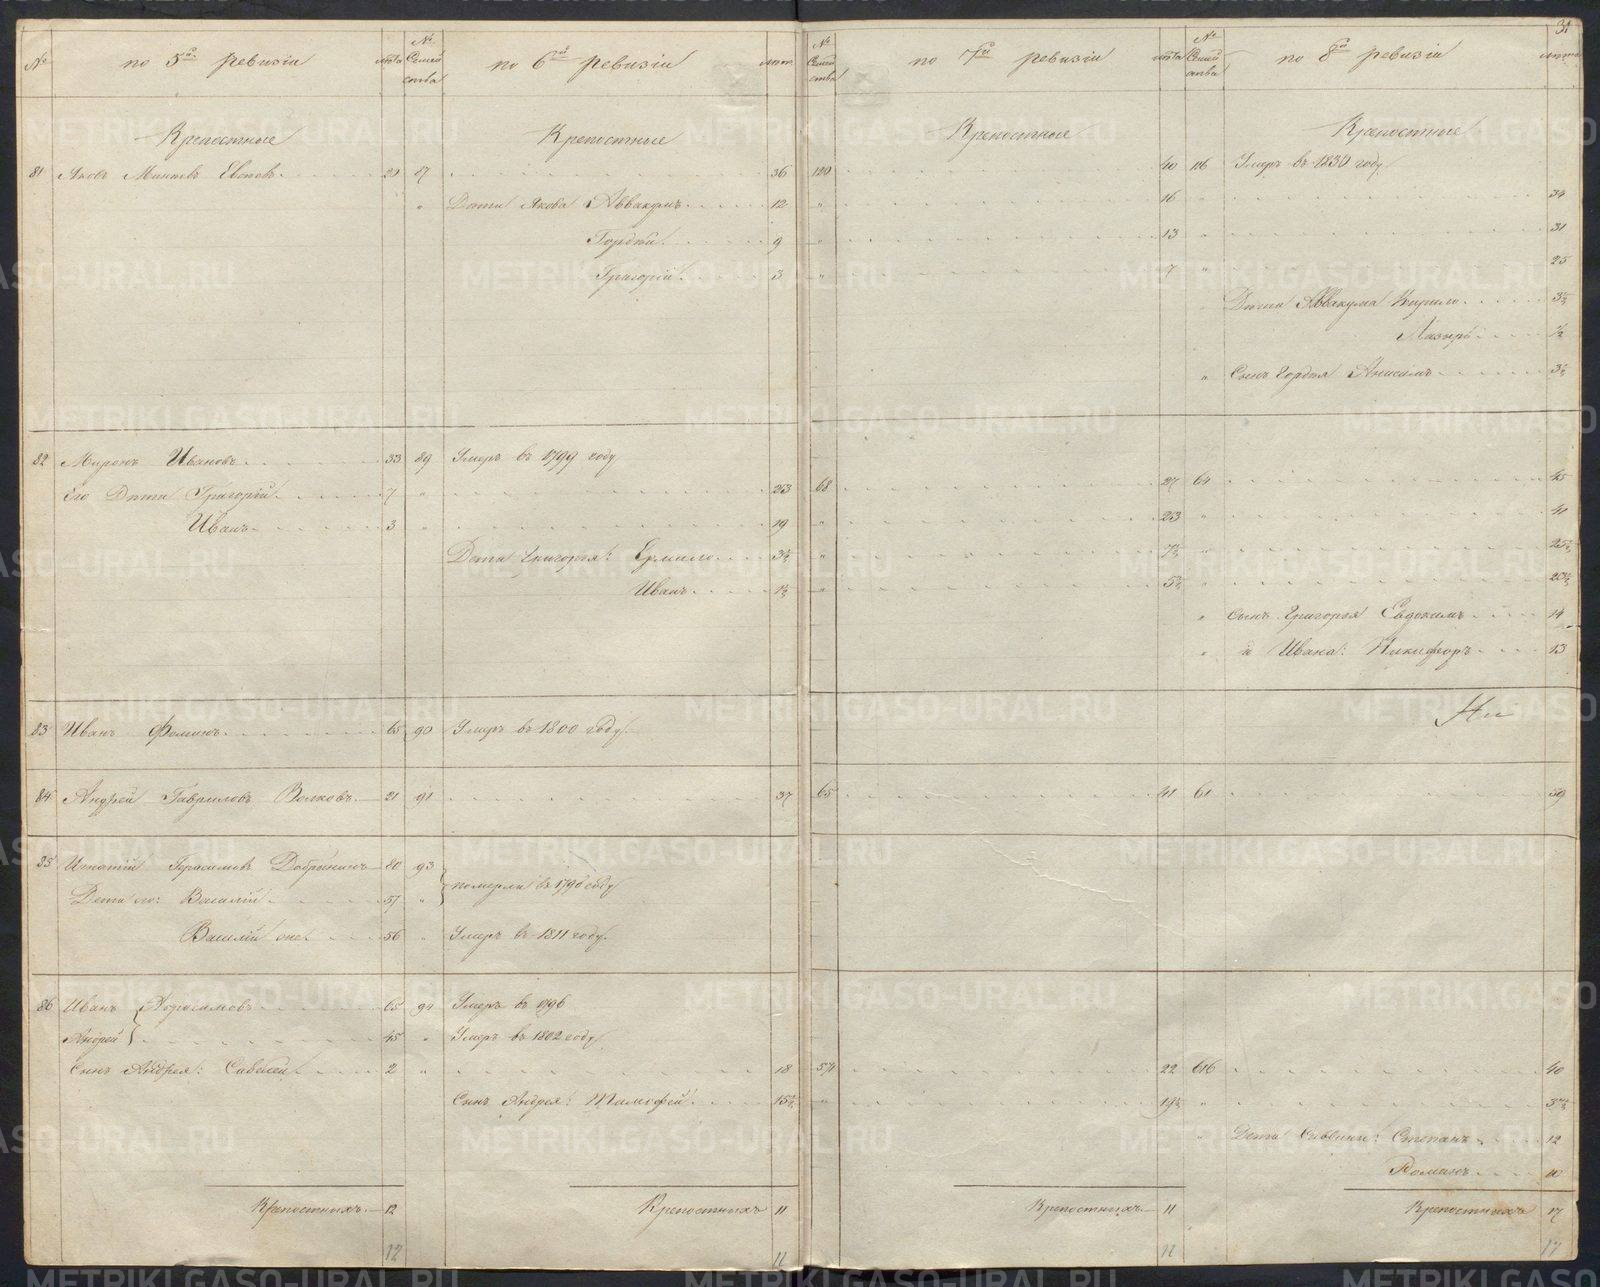 31
№ по 5й ревизіи лѣта
№ Семей ства по 6й ревизіи лѣта
№ Семей ства по 7й ревизіи лѣта
№ Семей ства по 8й ревизіи лѣта
Крепостные Крепостные Крепостные Крепостные
81 Яковъ 20 87 36 120 40 116 Умеръ въ 1830 году
" Дети Якова Аввакумъ 12 " 16 34
Гордѣй 9 " 13 " 31
Григорій 3 " 7 " 25
Дѣти Аввакума Кирило
Лазырь
" Сынъ Гордѣя Анисимъ
82 Миронъ Ивановъ 33 89 Умеръ въ 1799 году
Его Дети Григорій 7 " 23 68 27 64 45
Иванъ 3 " 19 " 23 " 41
Дети Григорья: Ермило
Иванъ
" Сынъ Григорья Евдокимъ 14
" и Ивана: Никифоръ 13
83 Иванъ Фоминъ 65 90 Умеръ въ 1800 году
84 Андрей Гавриловъ Волковъ 21 91 37 65 41 61 59
85 Герасимовъ Добрынинъ 80 93
померли въ 1796 году
Дети его: Василій 57 "
Василій онъ 56 " Умеръ въ 1811 году.
86 Иванъ Герасимовъ 65 94 Умеръ въ 1796
Андрей 45 " Умеръ въ 1802 году
Сынъ Андрея: Савелей 2 " 18 57 22 66 40
Сынъ Андрея: Тимофей
" Дети Савелія: Степанъ 12
Романъ 10
Крепостныхъ 12 Крепостныхъ 11 Крепостныхъ 11 Крепостныхъ 17
12 11 11 17
METRIKI.GASO-URAL.RU